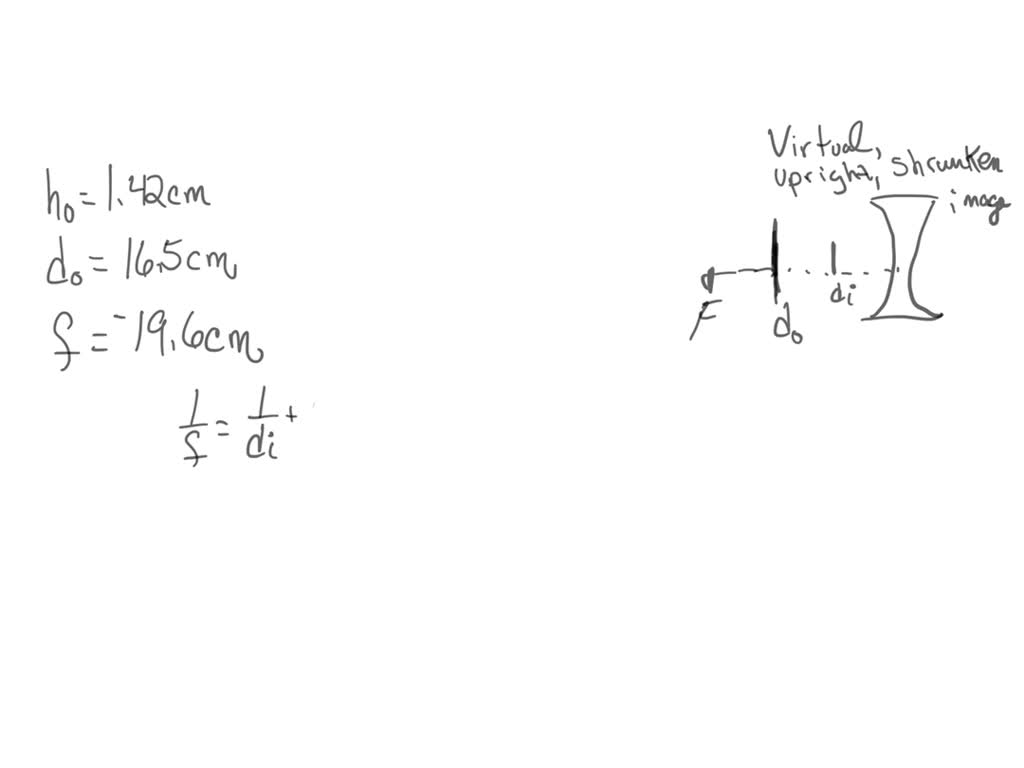 h₀ = 1.42cm
d₀ = 16.5cm
f = -19.6cm
1/f = 1/di +
Virtual,
upright, shrunken
imag
F
d₀
di